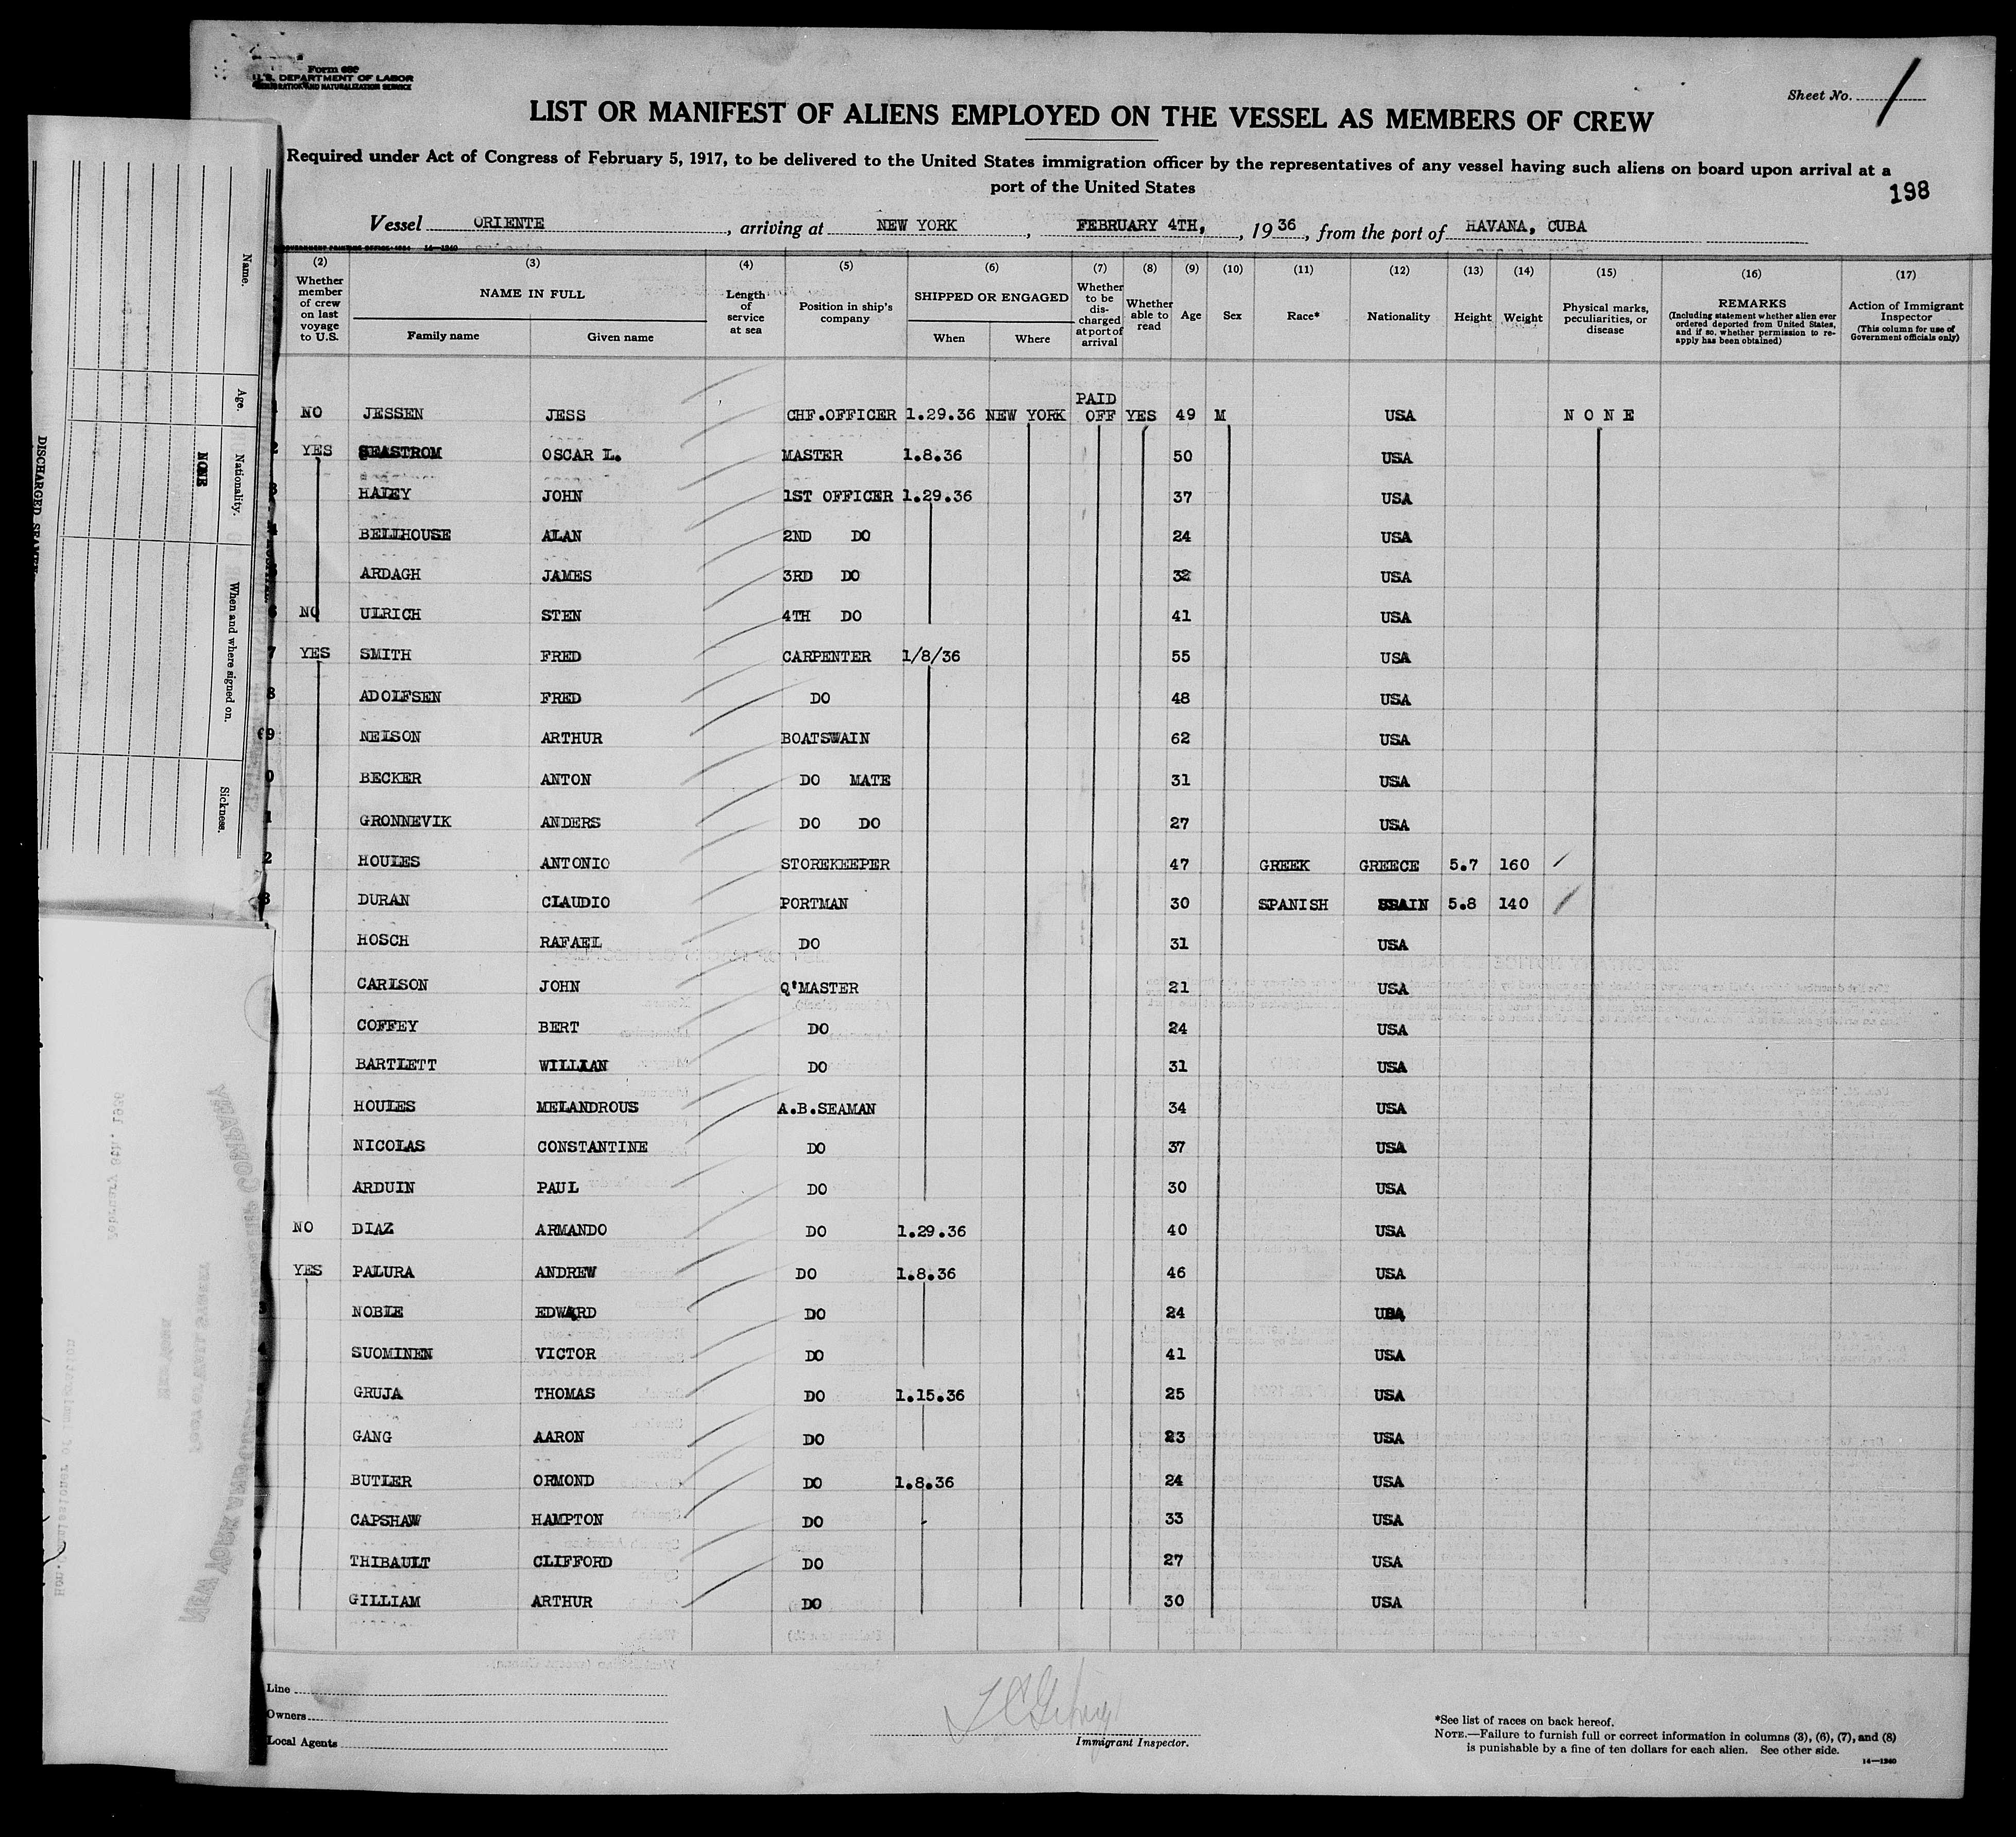 Form 680
U.S. DEPARTMENT OF LABOR
IMMIGRATION AND NATURALIZATION SERVICE
Sheet No. 1
LIST OR MANIFEST OF ALIENS EMPLOYED ON THE VESSEL AS MEMBERS OF CREW
Required under Act of Congress of February 5, 1917, to be delivered to the United States immigration officer by the representatives of any vessel having such aliens on board upon arrival at a
port of the United States
198
Vessel ORIENTE, arriving at NEW YORK, FEBRUARY 4TH, 1936, from the port of HAVANA, CUBA
(2) (3) (4) (5) (6) (7) (8) (9) (10) (11) (12) (13) (14) (15) (16) (17)
Whether member of crew on last voyage to U.S. NAME IN FULL Family name Given name Length of service at sea Position in ship's company SHIPPED OR ENGAGED When Where Whether to be discharged at port of arrival Whether able to read Age Sex Race* Nationality Height Weight Physical marks, peculiarities, or disease REMARKS (Including statement whether alien ever ordered deported from United States, and if so, whether permission to re-apply has been obtained) Action of Immigrant Inspector (This column for use of Government officials only)
NO JESSEN JESS CHF.OFFICER 1.29.36 NEW YORK PAID OFF YES 49 M USA NONE
YES SEASTROM OSCAR L. MASTER 1.8.36 50 USA
HALEY JOHN 1ST OFFICER 1.29.36 37 USA
BELLHOUSE ALAN 2ND DO 24 USA
ARDAGH JAMES 3RD DO 32 USA
NO ULRICH STEN 4TH DO 41 USA
7 YES SMITH FRED CARPENTER 1/8/36 55 USA
8 ADOLFSEN FRED DO 48 USA
9 NELSON ARTHUR BOATSWAIN 62 USA
0 BECKER ANTON DO MATE 31 USA
1 GRONNEVIK ANDERS DO DO 27 USA
2 HOULES ANTONIO STOREKEEPER 47 GREEK GREECE 5.7 160
3 DURAN CLAUDIO PORTMAN 30 SPANISH SPAIN 5.8 140
HOSCH RAFAEL DO 31 USA
CARLSON JOHN Q'MASTER 21 USA
COFFEY BERT DO 24 USA
BARTLETT WILLIAN DO 31 USA
HOULES MELANDROUS A.B.SEAMAN 34 USA
NICOLAS CONSTANTINE DO 37 USA
ARDUIN PAUL DO 30 USA
NO DIAZ ARMANDO DO 1.29.36 40 USA
YES PALURA ANDREW DO 1.8.36 46 USA
NOBLE EDWARD DO 24 USA
SUOMINEN VICTOR DO 41 USA
GRUJA THOMAS DO 1.15.36 25 USA
GANG AARON DO 23 USA
BUTLER ORMOND DO 1.8.36 24 USA
CAPSHAW HAMPTON DO 33 USA
THIBAULT CLIFFORD DO 27 USA
GILLIAM ARTHUR DO 30 USA
Line
Owners
Local Agents
Immigrant Inspector.
*See list of races on back hereof.
NOTE.—Failure to furnish full or correct information in columns (3), (6), (7), and (8)
is punishable by a fine of ten dollars for each alien. See other side.
14—1240
DISCHARGED
Name. Age. Nationality. When and where signed on. Sickness.
NONE